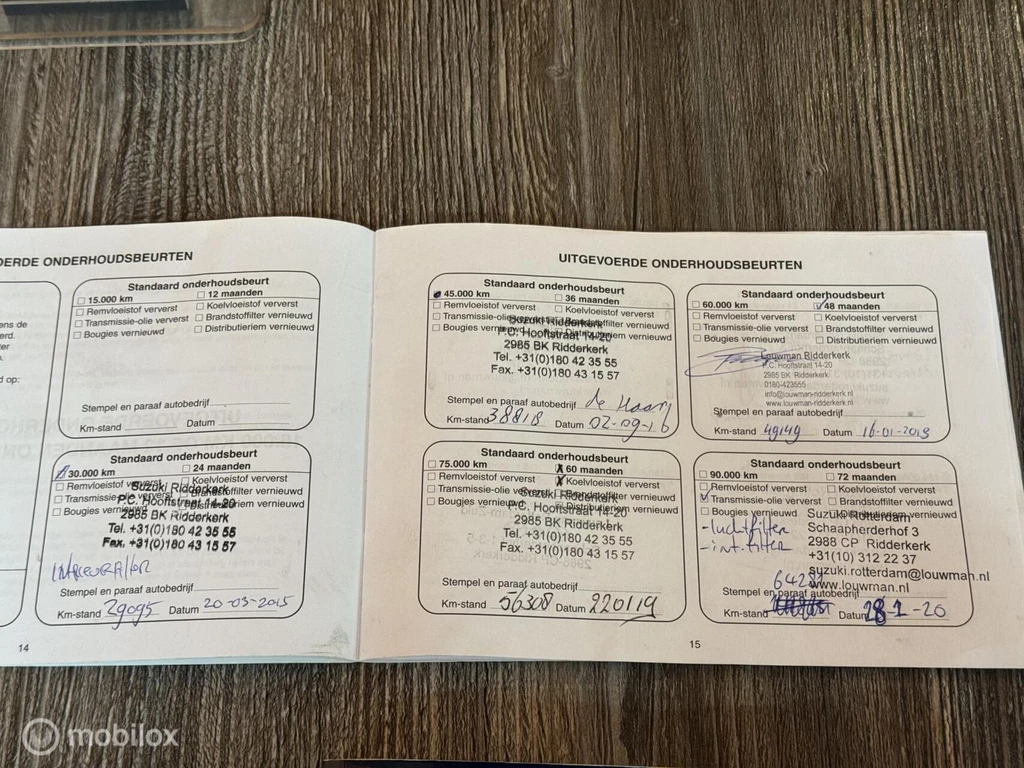 OERDE ONDERHOUDSBEURTEN
Standaard onderhoudsbeurt
15.000 km 12 maanden
Remvloeistof ververst Koelvloeistof ververst
Transmissie-olie ververst Brandstoffilter vernieuwd
Bougies vernieuwd Distributieriem vernieuwd
Stempel en paraaf autobedrijf
Km-stand Datum
Standaard onderhoudsbeurt
30.000 km 24 maanden
Remvloeistof ververst Koelvloeistof ververst
Transmissie-olie ververst Brandstoffilter vernieuwd
Bougies vernieuwd Distributieriem vernieuwd
Suzuki Ridderkerk
P.C. Hooftstraat 14-20
2985 BK Ridderkerk
Tel. +31(0)180 42 35 55
Fax. +31(0)180 43 15 57
Stempel en paraaf autobedrijf
Km-stand 29095 Datum 20-03-2015
14
UITGEVOERDE ONDERHOUDSBEURTEN
Standaard onderhoudsbeurt
45.000 km 36 maanden
Remvloeistof ververst Koelvloeistof ververst
Transmissie-olie ververst Brandstoffilter vernieuwd
Bougies vernieuwd Distributieriem vernieuwd
Suzuki Ridderkerk
P.C. Hooftstraat 14-20
2985 BK Ridderkerk
Tel. +31(0)180 42 35 55
Fax. +31(0)180 43 15 57
Stempel en paraaf autobedrijf de Haan
Km-stand 38818 Datum 02-09-16
Standaard onderhoudsbeurt
60.000 km 48 maanden
Remvloeistof ververst Koelvloeistof ververst
Transmissie-olie ververst Brandstoffilter vernieuwd
Bougies vernieuwd Distributieriem vernieuwd
Louwman Ridderkerk
P.C. Hooftstraat 14-20
2985 BK Ridderkerk
0180-423555
info@louwman-ridderkerk.nl
www.louwman-ridderkerk.nl
Stempel en paraaf autobedrijf
Km-stand 49149 Datum 16-01-2018
Standaard onderhoudsbeurt
75.000 km 60 maanden
Remvloeistof ververst Koelvloeistof ververst
Transmissie-olie ververst Brandstoffilter vernieuwd
Bougies vernieuwd Distributieriem vernieuwd
Suzuki Ridderkerk
P.C. Hooftstraat 14-20
2985 BK Ridderkerk
Tel. +31(0)180 42 35 55
Fax. +31(0)180 43 15 57
Stempel en paraaf autobedrijf
Km-stand 56308 Datum 220119
Standaard onderhoudsbeurt
90.000 km 72 maanden
Remvloeistof ververst Koelvloeistof ververst
Transmissie-olie ververst Brandstoffilter vernieuwd
Bougies vernieuwd Distributieriem vernieuwd
- luchtfilter
- int. filter
Suzuki Rotterdam
Schaapherderhof 3
2988 CP Ridderkerk
+31(10) 312 22 37
suzuki.rotterdam@louwman.nl
www.louwman.nl
Stempel en paraaf autobedrijf
Km-stand Datum 28-1-20
15
mobilox